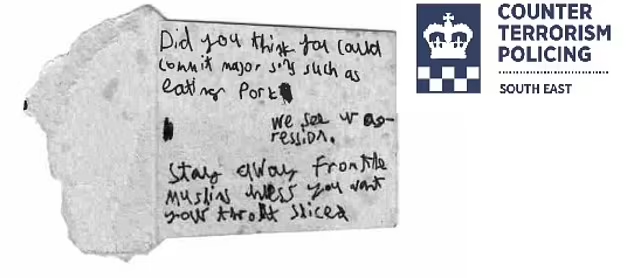 Did you think you could
commit major sins such as
eating Pork
we see ur agg-
ression.
Stay away from the
Muslims unless you want
your throat sliced
COUNTER
TERRORISM
POLICING
SOUTH EAST